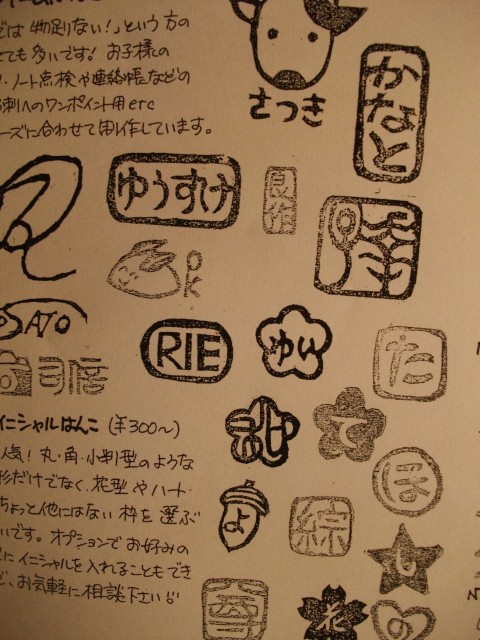 では 物足りない!」という 方の
とても 多いです! お子様の
ノート点検や連絡帳などの
名刺へのワンポイント用 etc
ニーズに合わせて制作しています。
さつき
かなと
ゆうすけ
良作
OK
SATO
RIE
ゆい
た
て
ほ
よ
綜
も
尊
花
の
イニシャルはんこ (¥300〜)
人気! 丸・角・小判型のような
形だけでなく、花型 や ハート・
ちょっと他にはない 枠を 選ぶ
いです。オプションで お好みの
にイニシャルを入れることもでき
ど、お気軽に相談下さい